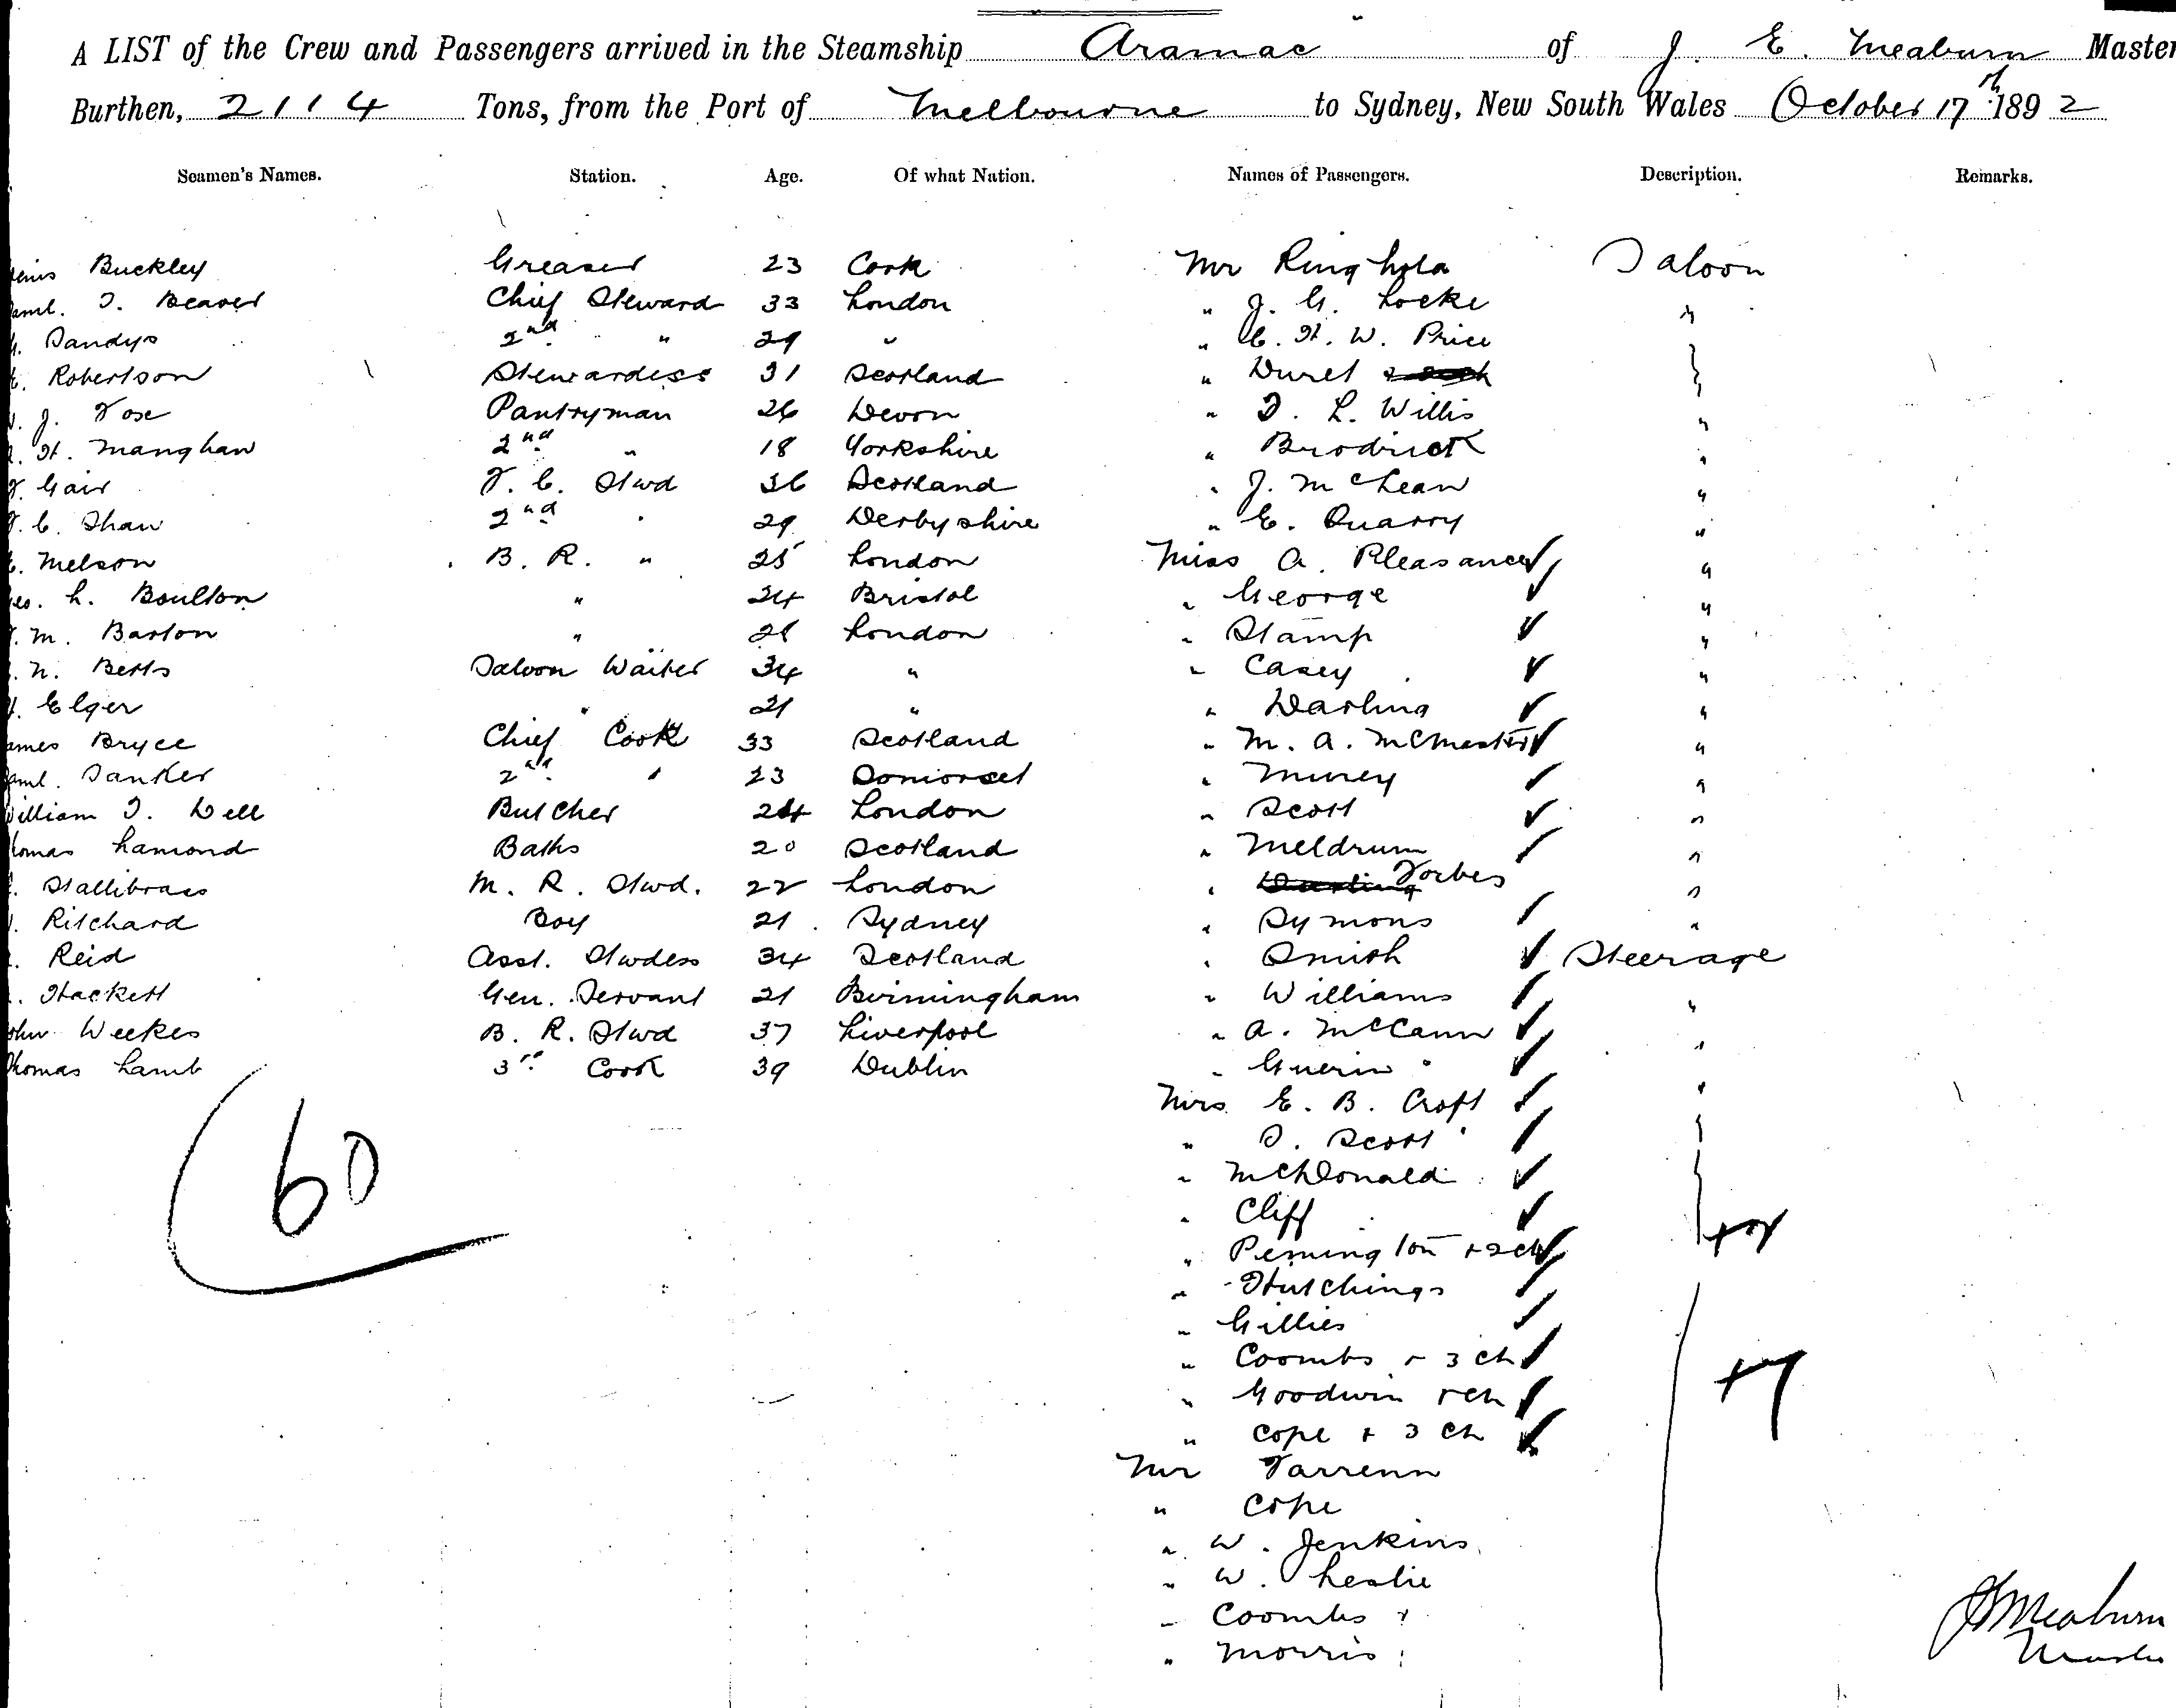 A LIST of the Crew and Passengers arrived in the Steamship Aramac of J. E. Meaburn Master
Burthen, 2114 Tons, from the Port of Melbourne to Sydney, New South Wales October 17th 1892
Seamen's Names. Station. Age. Of what Nation. Names of Passengers. Description. Remarks.
Buckley Greaser 23 Cork Mr Saloon
T. Beaver Chief Steward 33 London " J. G. Locke "
Sandys 2nd " 29 " " C. H. W. Price "
Robertson Stewardess 31 Scotland " Duret "
J. Vose Pantryman 26 Devon " L. Willis "
H. Manghan 2nd " 18 Yorkshire " Brodrick "
Gair F. C. Stwd 36 Scotland " J. McLean "
C. Shaw 2nd " 29 Derbyshire " E. Quarry "
Melson B. R. " 25 London Miss A. Pleasance "
L. Boulton " 24 Bristol " George "
M. Barton " London " Stamp "
N. Betts Saloon Waiter 34 " " Casey "
Elger " 21 " " Darling "
ames Bryce Chief Cook 33 Scotland " M. A. McMaster "
aml. Sanker 2nd " 23 Somerset " "
William T. Dell Butcher 24 London " Scott "
homas Lamond Baths 20 Scotland " Meldrum "
Stallibrass M. R. Stwd. 22 London " Forbes "
Ritchard Boy 21 Sydney " Symons "
Reid Asst. Stwdess 34 Scotland " Smith Steerage
Hackett Gen. Servant 21 Birmingham " Williams "
ohn Weekes B. R. Stwd 37 Liverpool " A. McCann "
Thomas Lamb 3rd Cook 39 Dublin " Guerin "
Mrs E. B. Croft
" Scott
" McDonald
" Cliff
60
" Pennington + 2 ch
" Hutchings
" Gillies
" Coombs + 3 ch
+7
" Goodwin + ch
" Cope + 3 ch
Mr
" Cope
" W. Jenkins
" W. Leslie
" Coombs
" Morris
Meaburn
Master